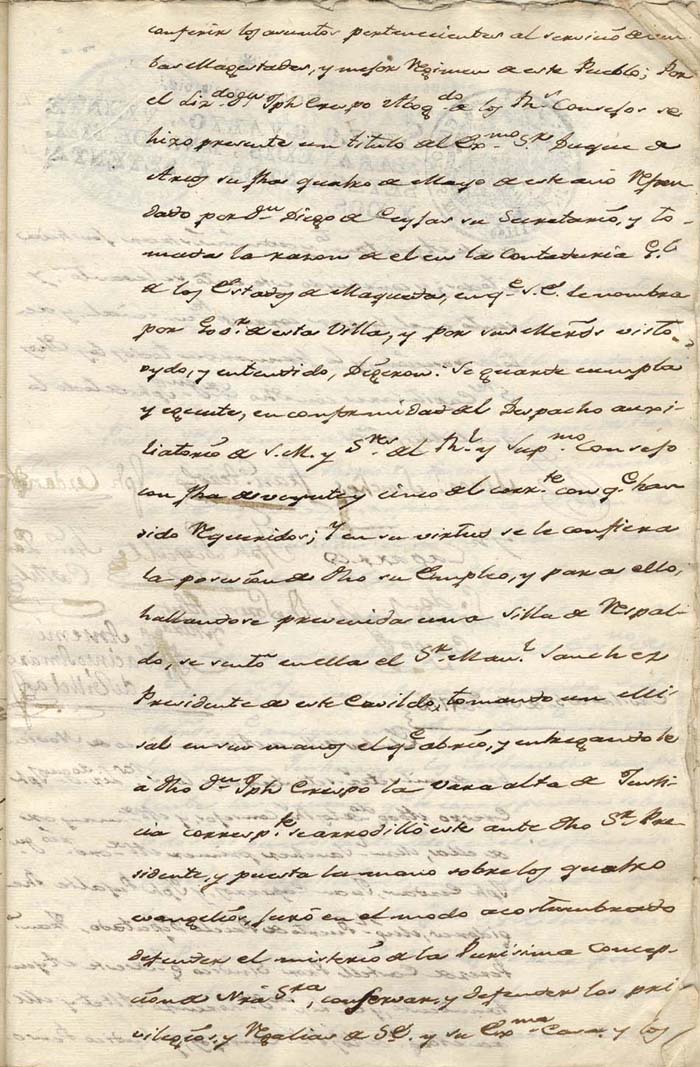 conferir los asuntos pertenecientes al servicio de am
bas Magestades, y mejor Regimen de este Pueblo; Por
el dho dn Jph Crespo Abogdo de los Rs Consejos se
hizo presente un titulo del Exmo Sr Duque de
Arcos su fha quatro de Mayo de este año Refren
dado por dn Diego de Cuyfas su Secretario, y to
mada la razon de el en la Contaduria Gl
de los Estados de Maqueda, en qe S.E. le nombra
por Govr de esta Villa, y por sus Mercds visto
oydo, y entendido, Dixeron: Se guarde cumpla
y execute, en conformidad del Despacho auxi
liatorio de S.M. y Sres del Rl y Supmo Consejo
con fha de veynte y cinco del corrte con qe han
sido Requeridos; Y en su virtud se le confiera
la posesion de dho su Empleo, y para ello,
hallandose prevenida una silla de Respal
do, se sentó en ella el Sr Manl Sanchez
Presidente de este Cavildo, tomando un Mi
sal en sus manos el qe abrió, y entregandole
á dho dn Jph Crespo la vara alta de Justi
cia correspte se arrodilló este ante dho Sr Pre
sidente, y puesta la mano sobre los quatro
evangelios, juró en el modo acostumbrado
defender el misterio de la Purisima Concep
cion de Nra Sra, conservar, y defender los pri
vilegios, y Regalias de S.E. y su Exma Casa, y los